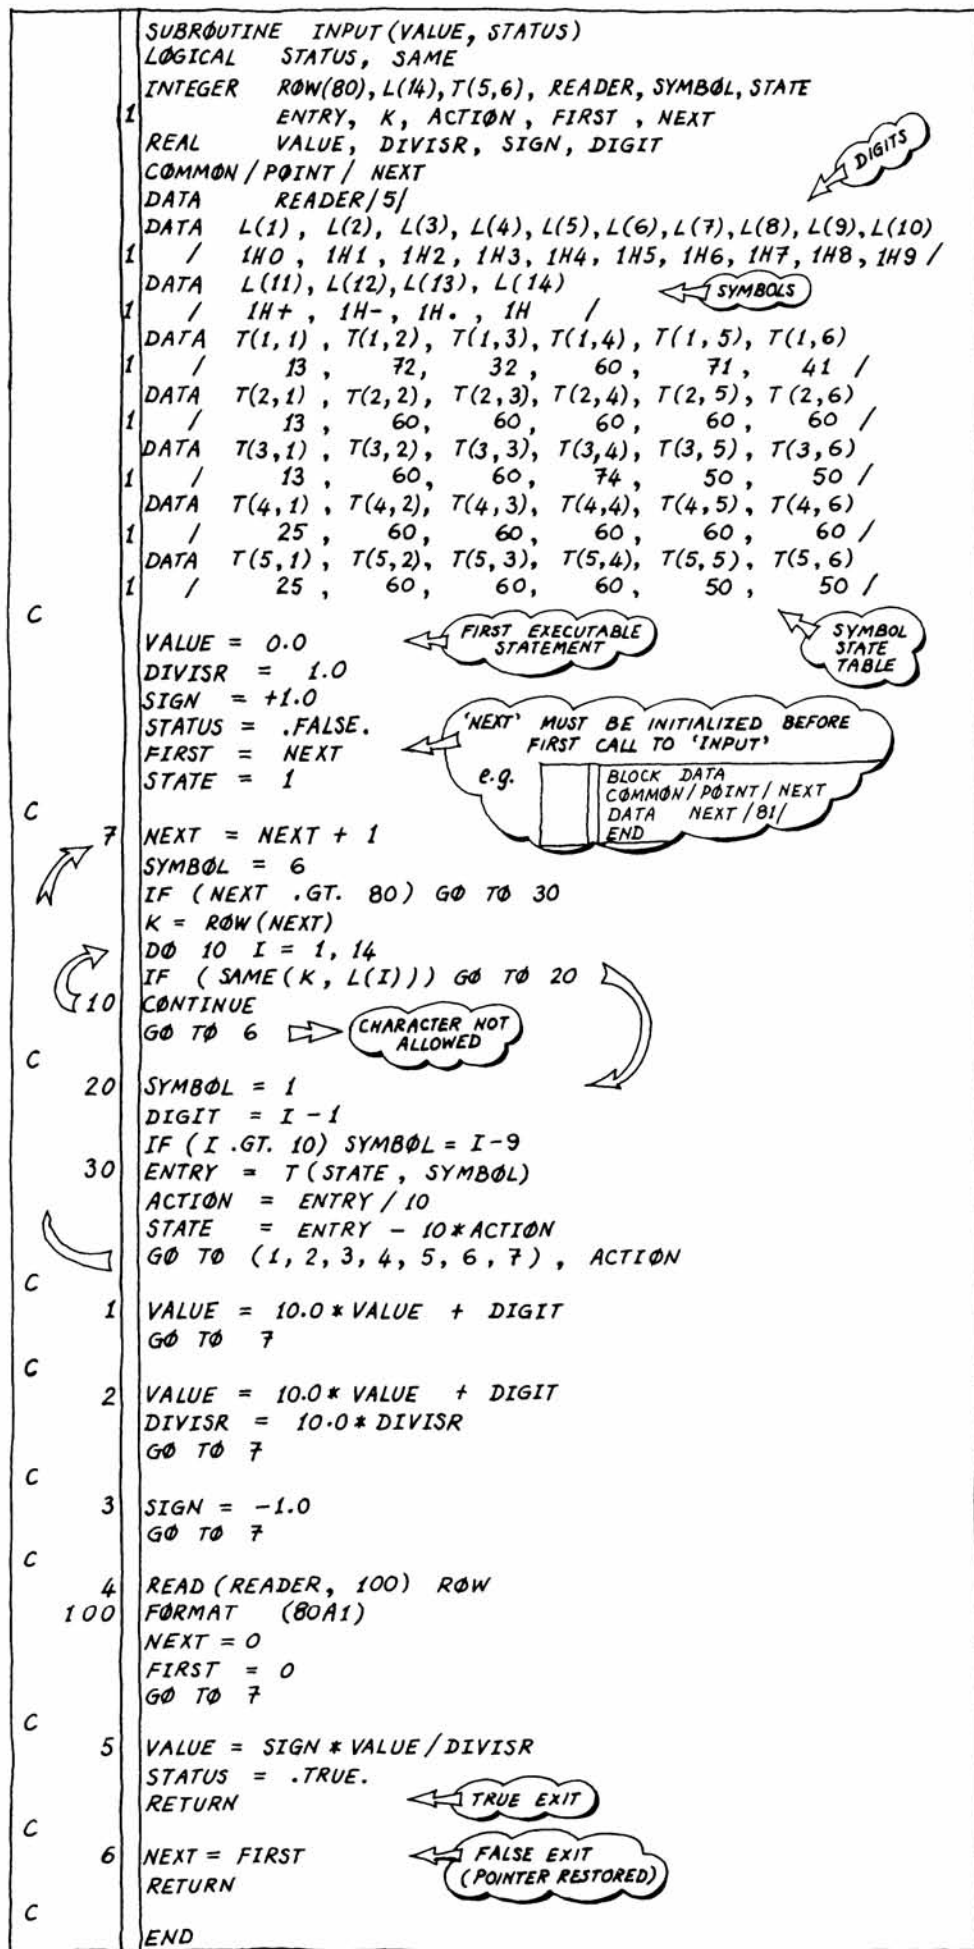 SUBRØUTINE INPUT(VALUE, STATUS)
LØGICAL STATUS, SAME
INTEGER RØW(80), L(14), T(5,6), READER, SYMBØL, STATE
1 ENTRY, K, ACTIØN, FIRST, NEXT
REAL VALUE, DIVISR, SIGN, DIGIT
CØMMØN/PØINT/ NEXT
DIGITS
DATA READER/5/
DATA L(1), L(2), L(3), L(4), L(5), L(6), L(7), L(8), L(9), L(10)
1 / 1H0, 1H1, 1H2, 1H3, 1H4, 1H5, 1H6, 1H7, 1H8, 1H9 /
DATA L(11), L(12), L(13), L(14)
SYMBOLS
1 / 1H+, 1H-, 1H., 1H /
DATA T(1,1), T(1,2), T(1,3), T(1,4), T(1,5), T(1,6)
1 / 13, 72, 32, 60, 71, 41 /
DATA T(2,1), T(2,2), T(2,3), T(2,4), T(2,5), T(2,6)
1 / 13, 60, 60, 60, 60, 60 /
DATA T(3,1), T(3,2), T(3,3), T(3,4), T(3,5), T(3,6)
1 / 13, 60, 60, 74, 50, 50 /
DATA T(4,1), T(4,2), T(4,3), T(4,4), T(4,5), T(4,6)
1 / 25, 60, 60, 60, 60, 60 /
DATA T(5,1), T(5,2), T(5,3), T(5,4), T(5,5), T(5,6)
1 / 25, 60, 60, 60, 50, 50 /
C
VALUE = 0.0
FIRST EXECUTABLE
STATEMENT
SYMBOL
STATE
TABLE
DIVISR = 1.0
SIGN = +1.0
STATUS = .FALSE.
FIRST = NEXT
STATE = 1
'NEXT' MUST BE INITIALIZED BEFORE
FIRST CALL TO 'INPUT'
e.g.
BLOCK DATA
CØMMØN/PØINT/ NEXT
DATA NEXT/81/
END
C
7 NEXT = NEXT + 1
SYMBØL = 6
IF (NEXT .GT. 80) GØ TØ 30
K = RØW(NEXT)
DØ 10 I = 1, 14
IF (SAME(K, L(I))) GØ TØ 20
10 CØNTINUE
GØ TØ 6
CHARACTER NOT
ALLOWED
C
20 SYMBØL = 1
DIGIT = I - 1
IF (I .GT. 10) SYMBØL = I-9
30 ENTRY = T(STATE, SYMBØL)
ACTIØN = ENTRY / 10
STATE = ENTRY - 10*ACTIØN
GØ TØ (1, 2, 3, 4, 5, 6, 7), ACTIØN
C
1 VALUE = 10.0 * VALUE + DIGIT
GØ TØ 7
C
2 VALUE = 10.0 * VALUE + DIGIT
DIVISR = 10.0 * DIVISR
GØ TØ 7
C
3 SIGN = -1.0
GØ TØ 7
C
4 READ (READER, 100) RØW
100 FØRMAT (80A1)
NEXT = 0
FIRST = 0
GØ TØ 7
C
5 VALUE = SIGN * VALUE / DIVISR
STATUS = .TRUE.
RETURN
TRUE EXIT
C
6 NEXT = FIRST
RETURN
FALSE EXIT
(POINTER RESTORED)
C
END